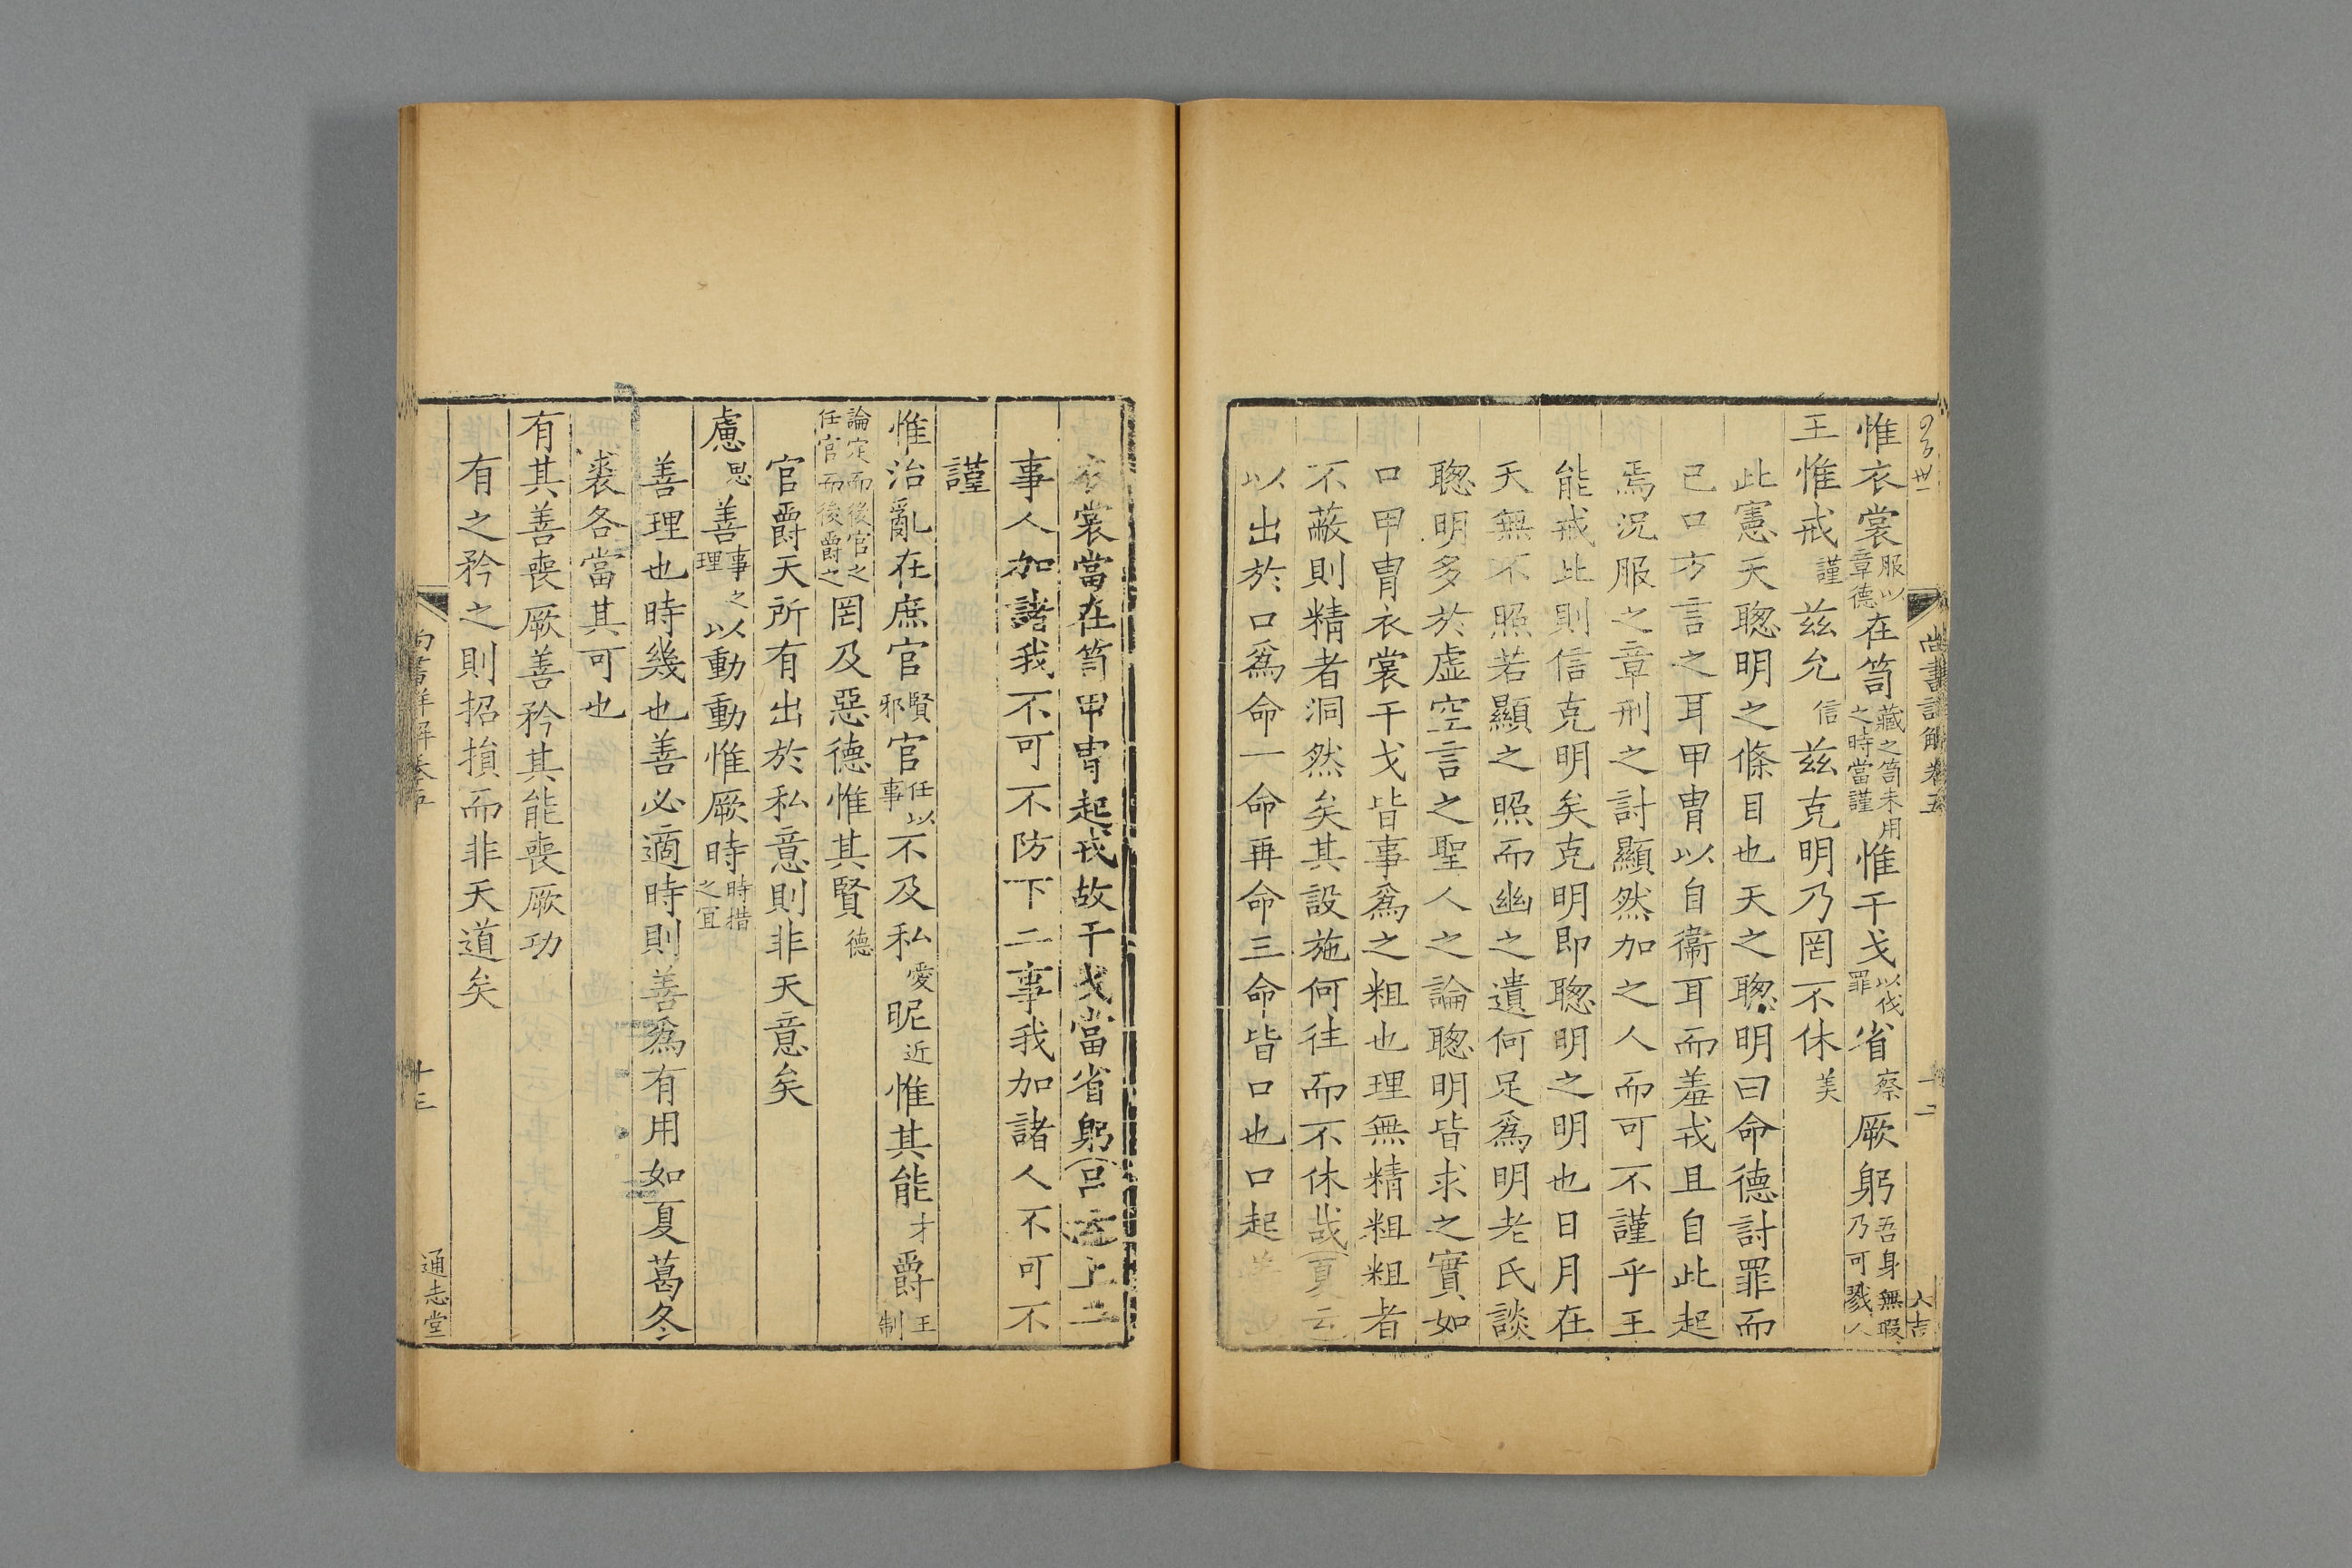 尚書詳解卷五
惟衣裳服以章德在笥藏之笥未用之時當謹惟干戈以伐罪省察厥躬吾身無瑕乃可戮人
王惟戒謹兹允信兹克明乃罔不休美
此憲天聦明之條目也天之聦明曰命德討罪而
已口方言之耳甲胄以自衞耳而羞戎且自此起
焉況服之章刑之討顯然加之人而可不謹乎王
能戒此則信克明矣克明即聦明之明也日月在
天無不照若顯之照而幽之遺何足爲明老氏談
聦明多於虚空言之聖人之論聦明皆求之實如
口甲胄衣裳干戈皆事爲之粗也理無精粗粗者
不蔽則精者洞然矣其設施何往而不休哉夏云
以出於口爲命一命再命三命皆口也口起
衣裳當在笥甲胄起戎故干戈當省躬吕云上二
事人加諸我不可不防下二事我加諸人不可不
謹
惟治亂在庶官賢邪官任以事不及私愛昵近惟其能才爵王制
論定而後官之任官而後爵之罔及惡德惟其賢德
官爵天所有出於私意則非天意矣
慮思善事之理以動動惟厥時時措之宜
善理也時幾也善必適時則善爲有用如夏葛冬
裘各當其可也
有其善喪厥善矜其能喪厥功
有之矜之則招損而非天道矣
尚書詳解卷五
十三
通志堂